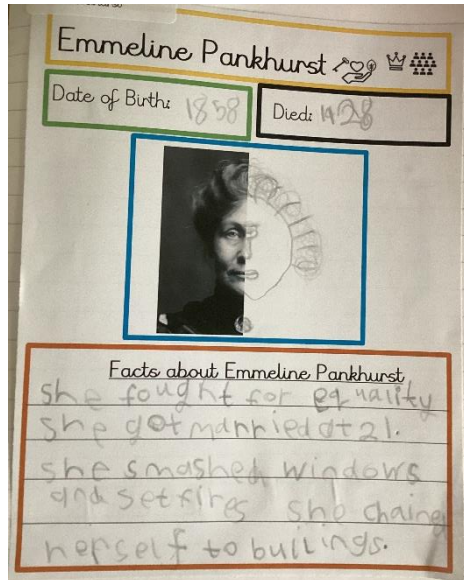 Emmeline Pankhurst
Date of Birth: 1858
Died: 1928
Facts about Emmeline Pankhurst
she fought for equality
she got married at 21.
she smashed windows
and set fires she chained
herself to bullings.